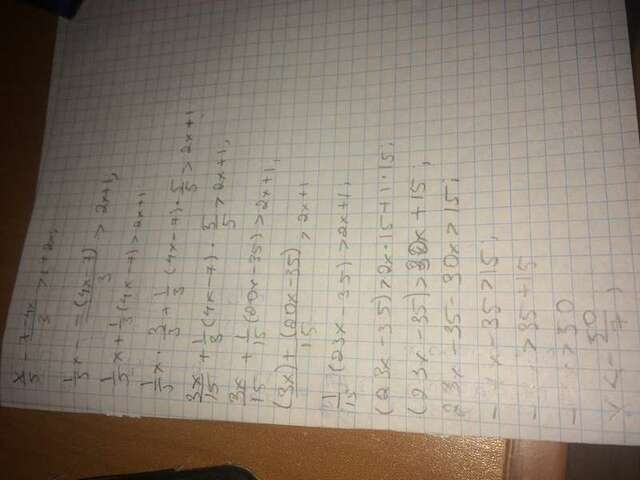 x/5 - (7-4x)/3 > 1+2x;
1/5 x - -(4x-7)/3 > 2x+1;
1/5 x + 1/3 (4x-7) > 2x+1
1/5 x · 3/3 + 1/3 (4x-7) · 5/5 > 2x+1
3x/15 + 1/3 (4x-7) · 5/5 > 2x+1;
3x/15 + 1/15 (20x-35) > 2x+1;
(3x)+(20x-35)/15 > 2x+1
1/15 (23x-35) > 2x+1;
(23x-35) > 2x·15+1·15;
(23x-35) > 30x+15;
23x-35-30x > 15;
x-35 > 15;
> 35+15
> 50
x < - 50/7